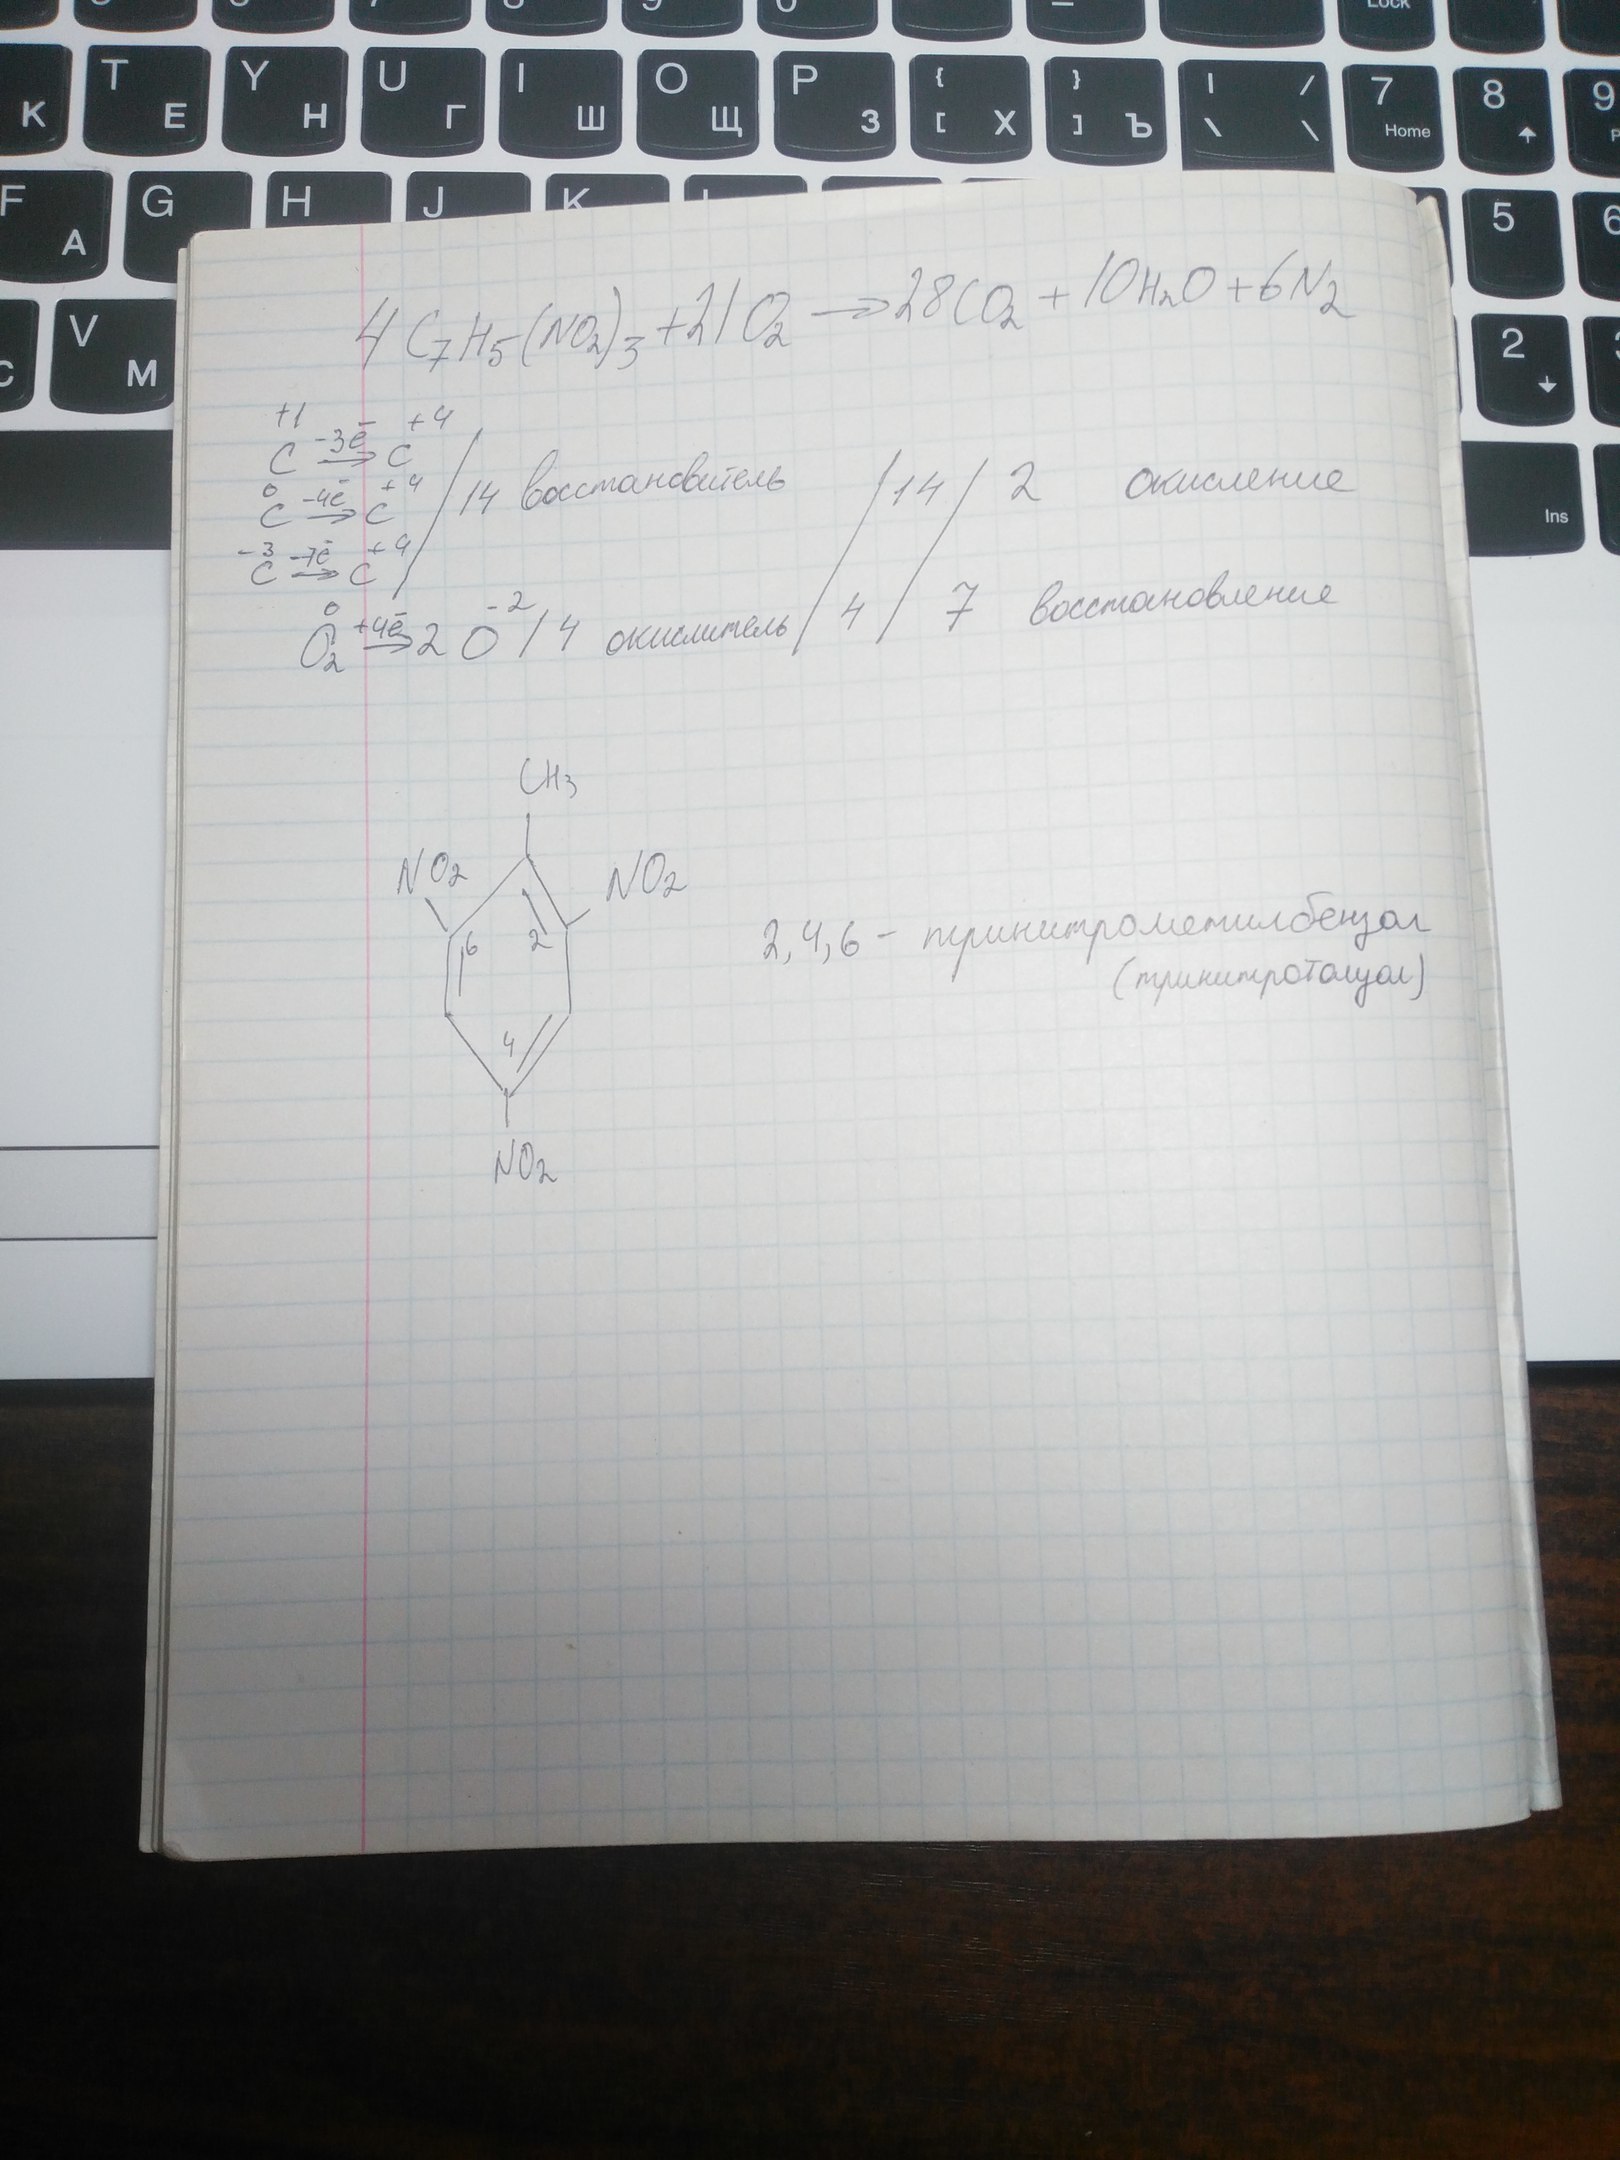 T Е Y Н U Г I Ш O Щ P З { [ Х } ] Ъ | \ / \ 7 Home 8 9
К
F А G H J K 5 6
V М 2
С
Ins
4 C7H5(NO2)3 + 21 O2 → 28CO2 + 10H2O + 6N2
+1 C -3ē → C +4
0 C -4ē → C +4 / 14 восстановитель / 14 / 2 окисление
-3 C -7ē → C +4
0 O2 +4ē → 2 O -2 / 4 окислитель / 4 / 7 восстановление
CH3
NO2 NO2
6 2
2,4,6 - тринитрометилбензол
(тринитротолуол)
4
NO2